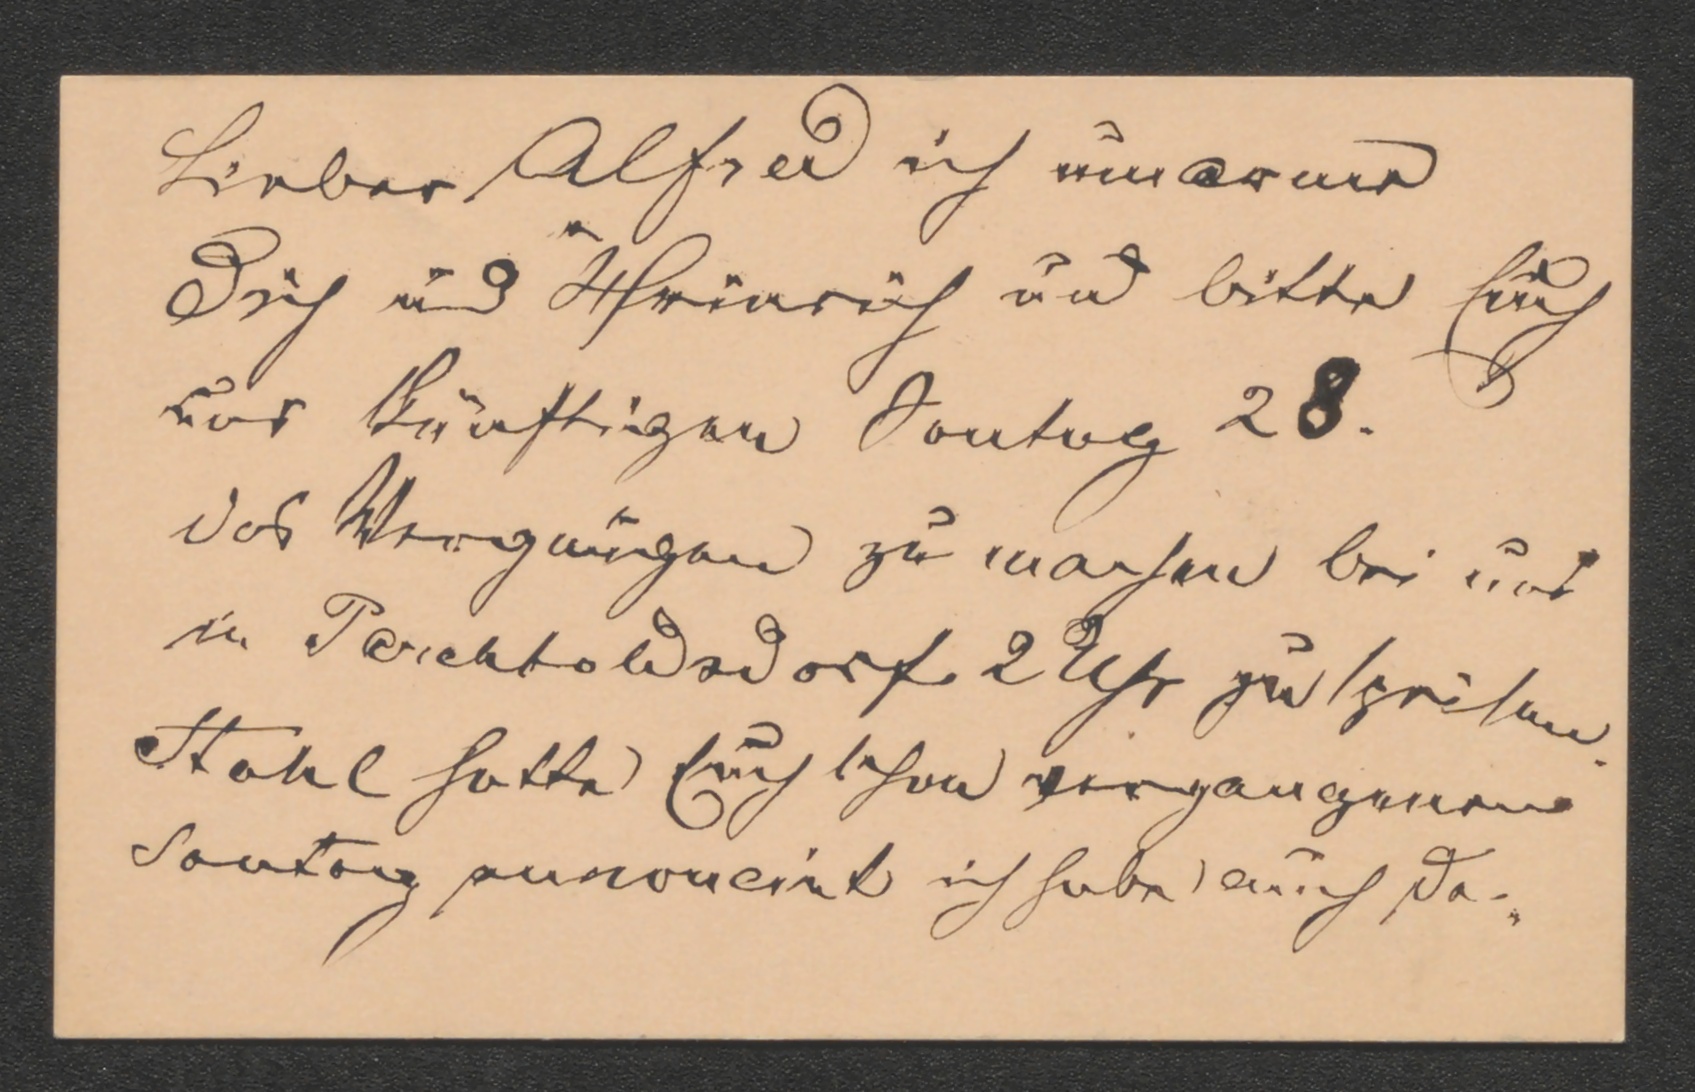 Lieber Alfred ich umarme
Dich und Heinrich und bitte Euch
uns künftigen Sontag 28.
das Vergnügen zu machen bei uns
in Perchtoldsdorf 2 Uhr zu speisen.
Stahl hatte Euch schon vergangenen
Sontag annoncirt ich habe auch da-